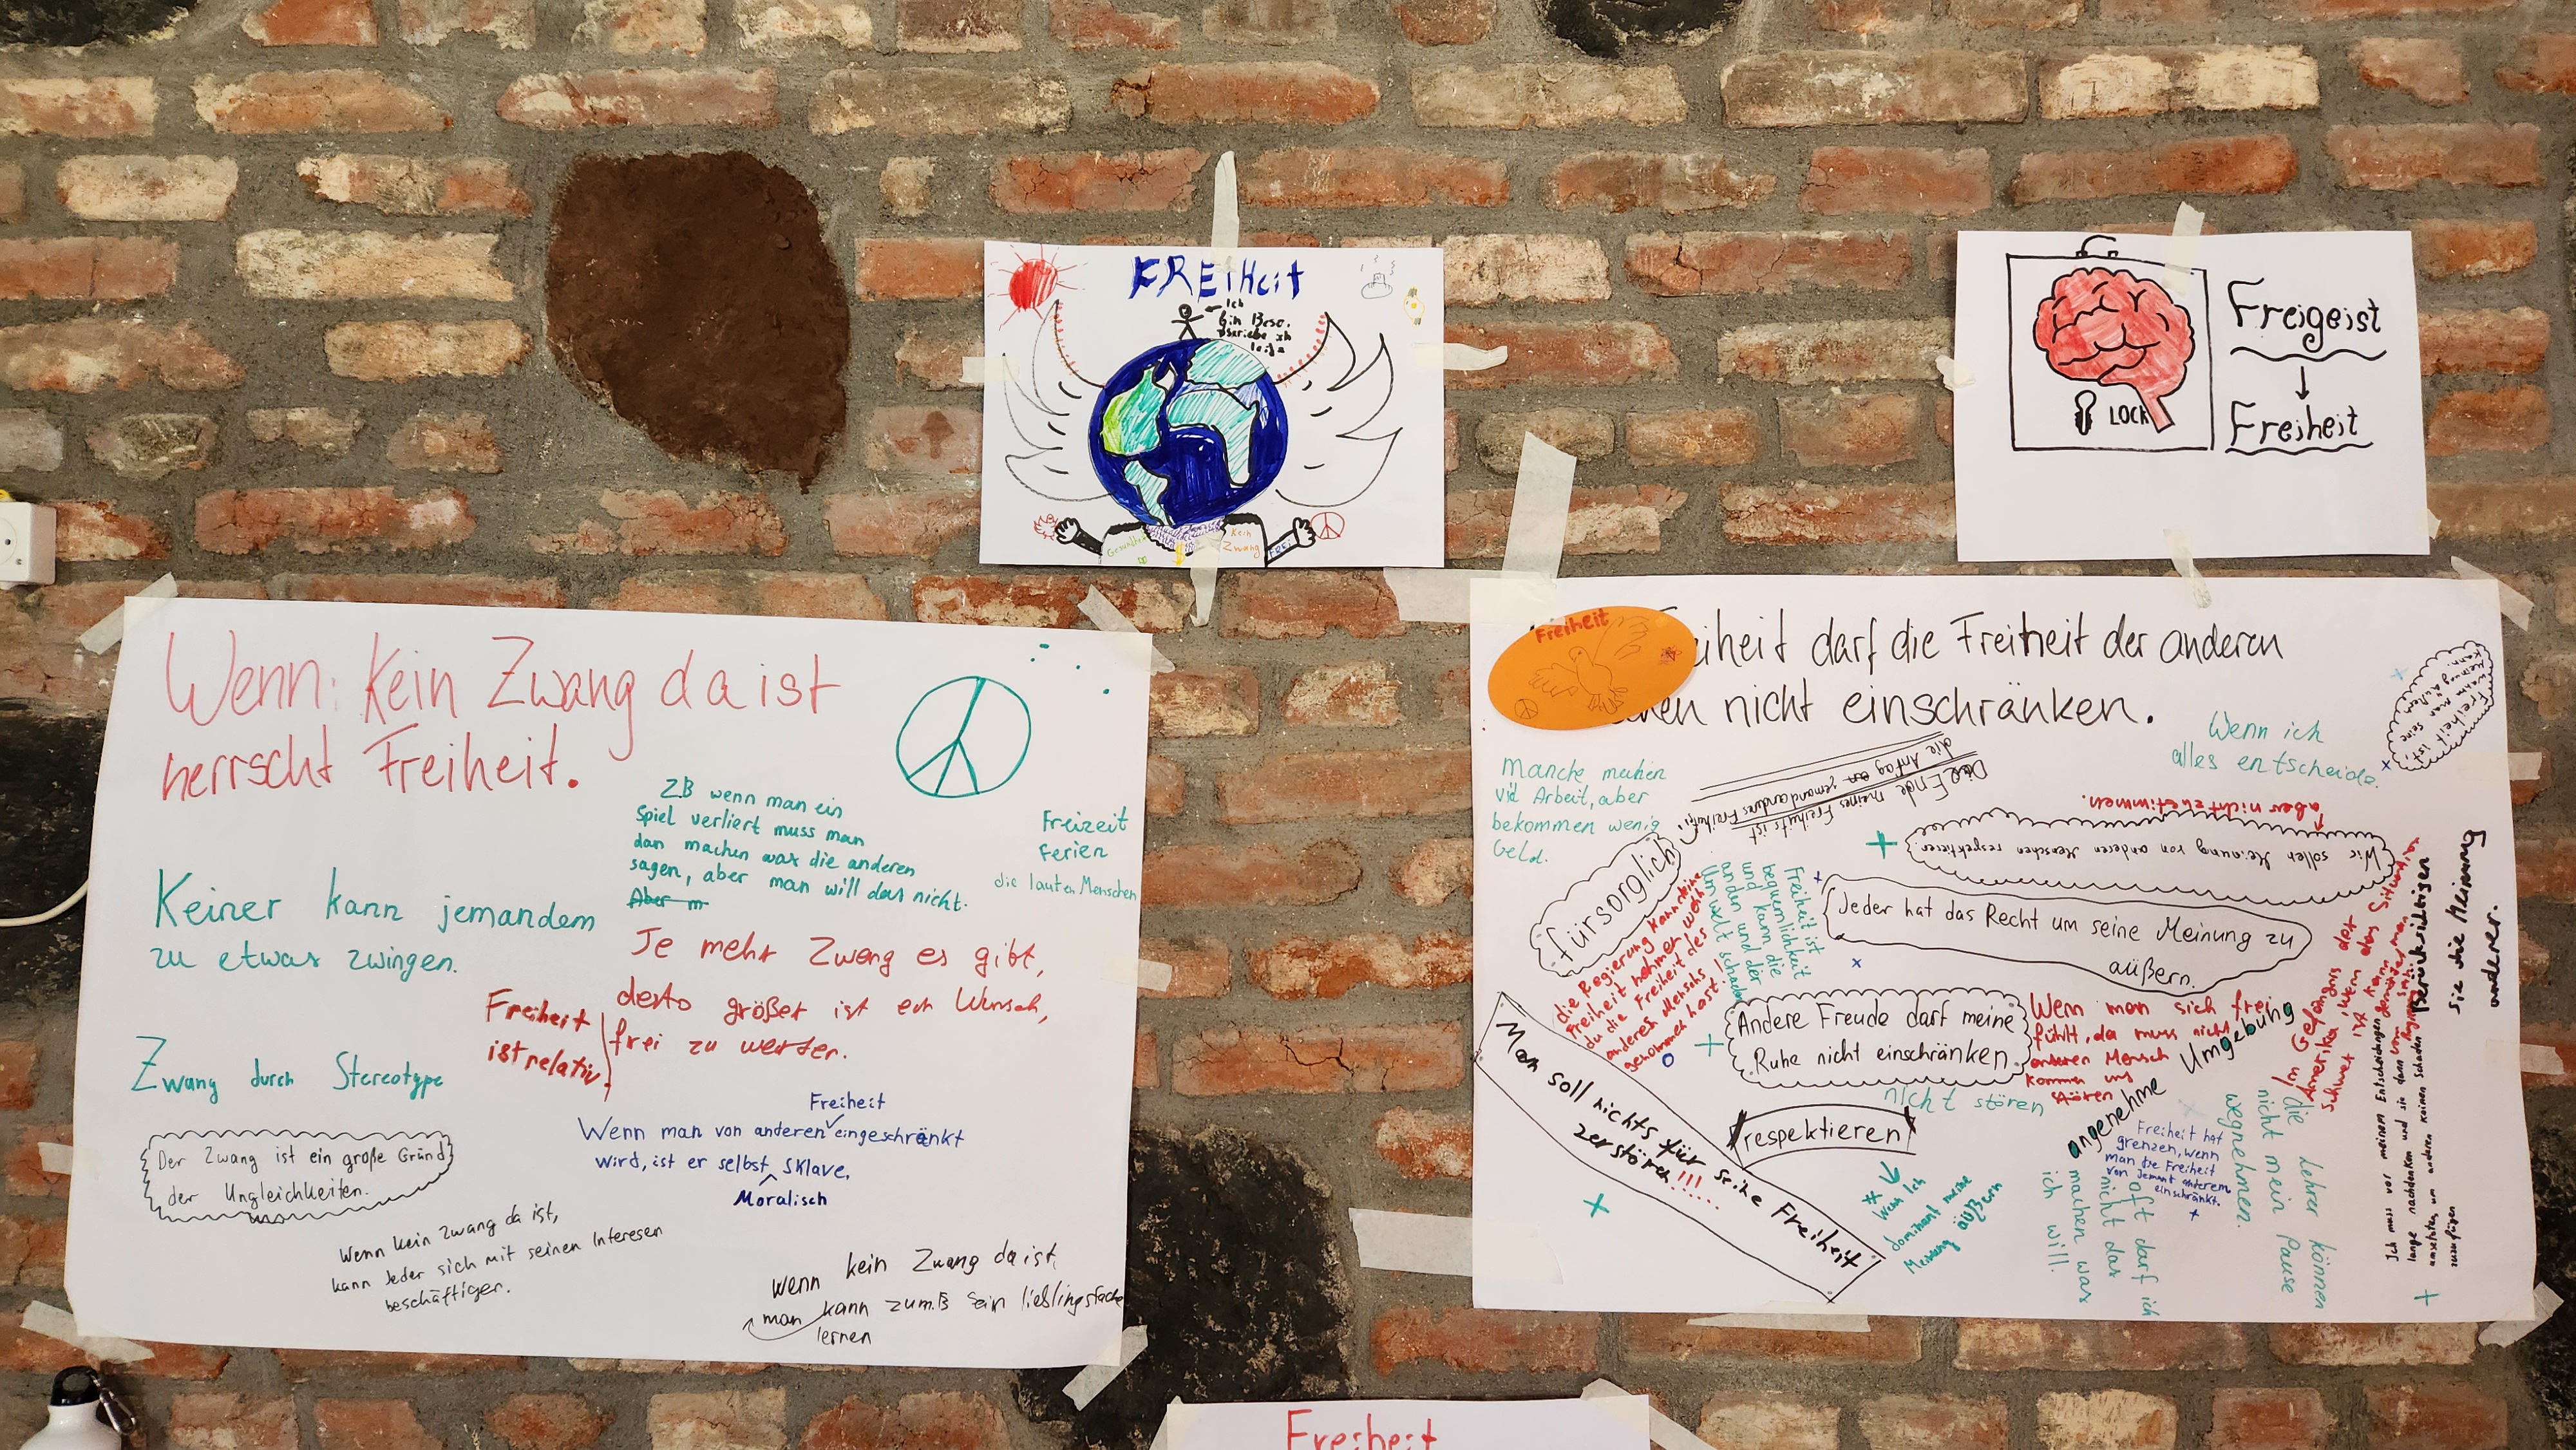 FREiHeit
Ich
bin
Kein
Zwang
Freigeist
Freiheit
LOCK
Wenn: Kein Zwang da ist
herrscht Freiheit.
Z.B wenn man ein
Spiel verliert muss man
dan machen was die anderen
sagen, aber man will das nicht.
Aber m
Freizeit
Ferien
die lauten Menschen
Keiner kann jemandem
zu etwas zwingen.
Je mehr Zwang es gibt,
desto größer ist ein Wunsch,
frei zu werden.
Freiheit
ist relativ.
Zwang durch Stereotype
Freiheit
Wenn man von anderen eingeschränkt
wird, ist er selbst Sklave.
Moralisch
Der Zwang ist ein große Gründ
der Ungleichkeiten.
Wenn kein Zwang da ist,
kann Jeder sich mit seinen Interesen
beschäftigen.
wenn kein Zwang da ist,
man kann zum.B sein lieblingsfache
lernen
Freiheit
eiheit darf die Freiheit der anderen
nicht einschränken.
Manche machen
viel Arbeit, aber
bekommen wenig
Geld.
Die Ende meines Freiheits ist
die Anfag an jemand anderes Freiheit
Wenn ich
alles entscheide
Freiheit ist,
wann man seine
Meinung äußern
kann.
aber nicht zustimmen.
Wir sollen Meinung von anderen Menschen respektieren
fürsorglich
die Regierung kann deine
Freiheit nehmen wenn
du die Freiheit des
anderes Menschs
genommen hast!
Freiheit ist
bequemlichkeit
und kann die
anden und der
Umwelt schaden
Jeder hat das Recht um seine Meinung zu
äußern.
Andere Freude darf meine
Ruhe nicht einschränken.
nicht stören
Wenn man sich frei
fühlt, da muss nicht
anderen Mensch
kommen und
stören
angenehme Umgebung
Berücksichtigen
sie die Meinung
anderer.
Man soll nichts für seine Freiheit
zerstören!!!.....
respektieren
Wenn Ich
dominant meine
Meinung äüßern
Freiheit hat
grenzen, wenn
man die Freiheit
von jemant anterem
einschränkt.
oft darf ich
nicht das
machen was
ich will.
die lehrer können
nicht mein Pause
wegnehmen.
Ich muss vor meinem Entscheidungen
lange nachdenken und sie dann
umsetzten, um anderen keinen Schaden
zuzufügen
Freiheit